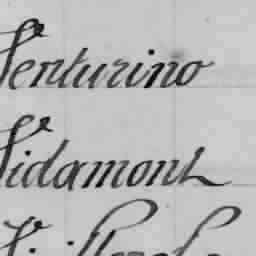 Venturino
Vidamont